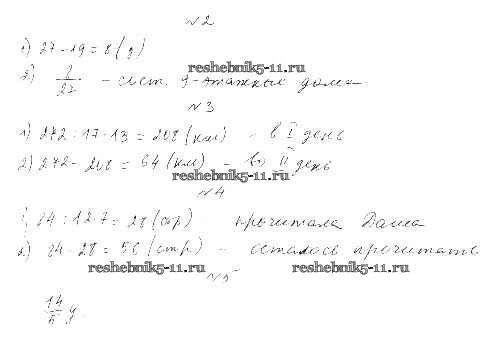 №2
1) 27-19=8(д)
reshebnik5-11.ru
2) 27 - 9-этажные дома
№3
1) 272:17·13=208(км) - в I день
2) 272-208=64(км) - во II день
reshebnik5-11.ru
№4
1) 84:12·7=28(стр) прочитала Даша
2) 84-28=56(стр) - осталось прочитать
reshebnik5-11.ru reshebnik5-11.ru
№5
14/5 ч.